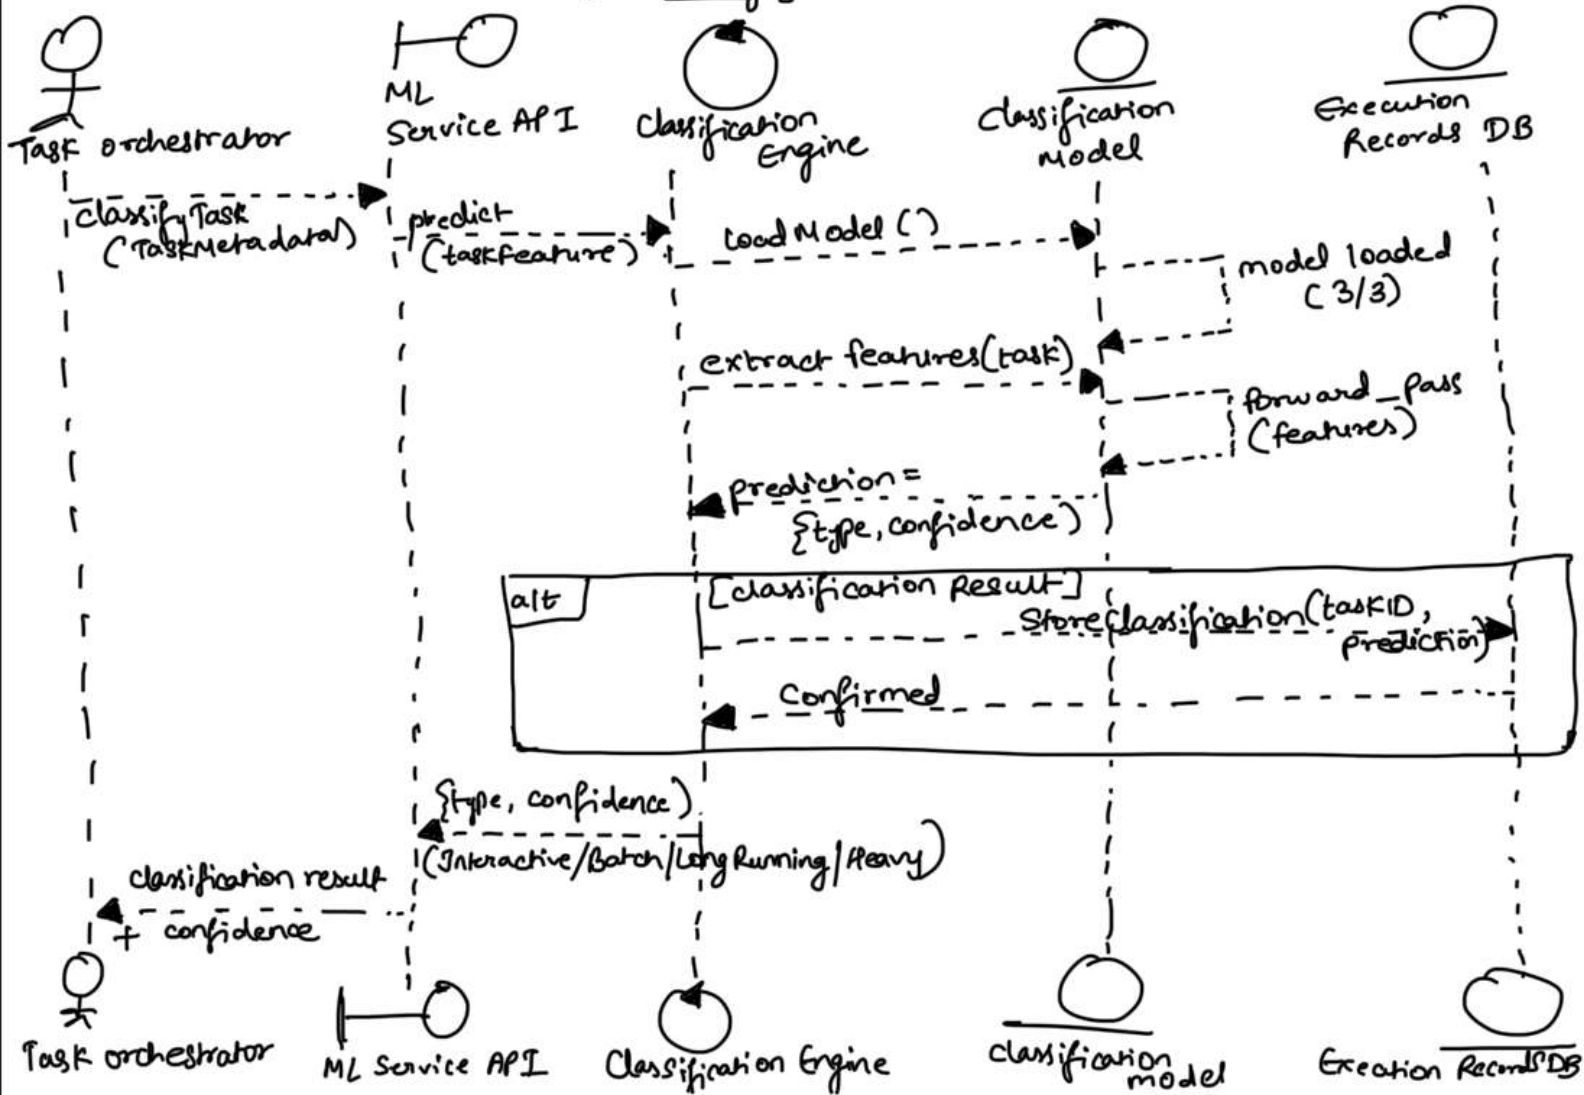 Task orchestrator
ML
Service API
Classification
Engine
Classification
Model
Execution
Records DB
classifyTask
(TaskMetadata)
predict
(taskfeature)
LoadModel ()
model loaded
(3/3)
extract features(task)
forward_pass
(features)
prediction =
{type, confidence)
alt
[classification Result]
StoreClassification(taskID,
prediction)
Confirmed
{type, confidence)
(Interactive/Batch/Long Running/Heavy)
classification result
+ confidence
Task orchestrator
ML Service API
Classification Engine
Classification
model
Exection Records DB